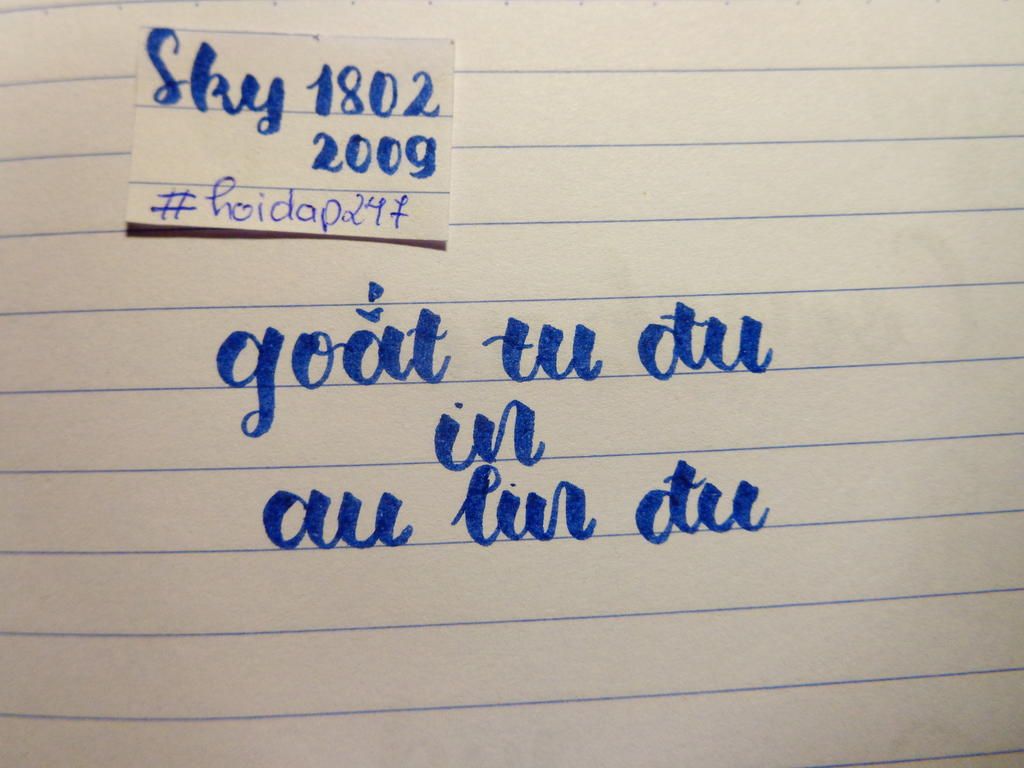 Sky 1802
2009
#hoidap247
goắt tu đu
in
au lin đu